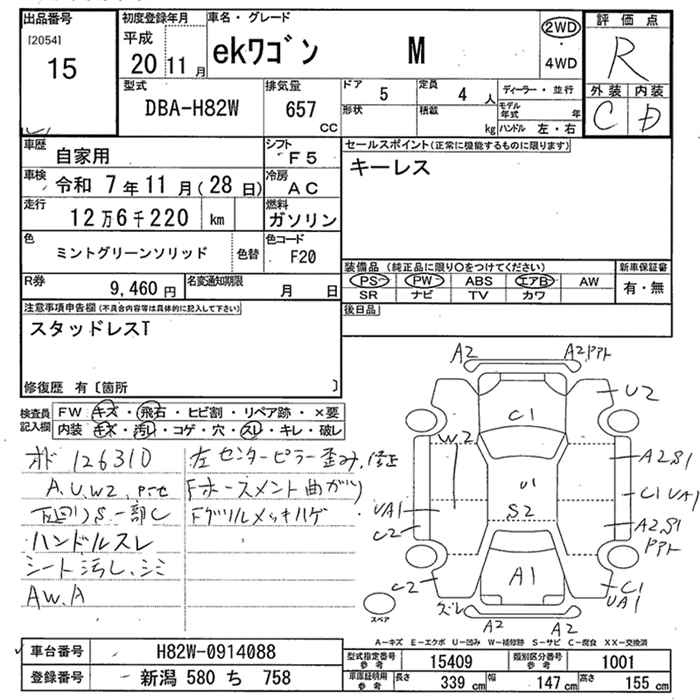 出品番号
[2054]
15
初度登録年月
平成
20 11月
車名・グレード
ekワゴン M
2WD
・
4WD
評価点
R
外装 内装
C D
型式
DBA-H82W
排気量
657
cc
ドア
5
定員
4人
形状
積載
kg
ディーラー・並行
モデル年式 年
ハンドル 左・右
車歴
自家用
シフト
F5
車検
令和 7年11月(28日)
冷房
AC
走行
12万6千220 km
燃料
ガソリン
色
ミントグリーンソリッド
色替
色コード
F20
R券
9,460円
名変通知期限
月 日
セールスポイント(正常に機能するものに限ります)
キーレス
装備品(純正品に限り○をつけてください)
PS PW ABS エアB AW
SR ナビ TV カワ
新車保証書
有・無
後日品
注意事項申告欄(不具合内容等は具体的に記入して下さい)
スタッドレスT
修復歴 有〔箇所 〕
検査員
記入欄
FW キズ・飛石・ヒビ割・リペア跡・×要
内装 キズ・汚れ・コゲ・穴・スレ・キレ・破レ
メド 126310
A.U.W2.
下回りS一部C
ハンドルスレ
シート汚し、シミ
AW.A
左センターピラー歪み修正
Fホースメント曲がり
Fグリルメッキハゲ
A2
A2
C1
U2
W2
A2.S1
U1
C1 UA1
UA1
S2
C2
A2.S1
A1
C2
C1
UA1
ズレ
A2
A2
スペア
A-キズ E-エクボ U-凹み W-補修跡 S-サビ C-腐食 XX-交換済
車台番号
H82W-0914088
登録番号
新潟 580 ち 758
型式指定番号
参考
15409
類別区分番号
参考
1001
車庫証明用
参考
長さ
339 cm
幅
147 cm
高さ
155 cm